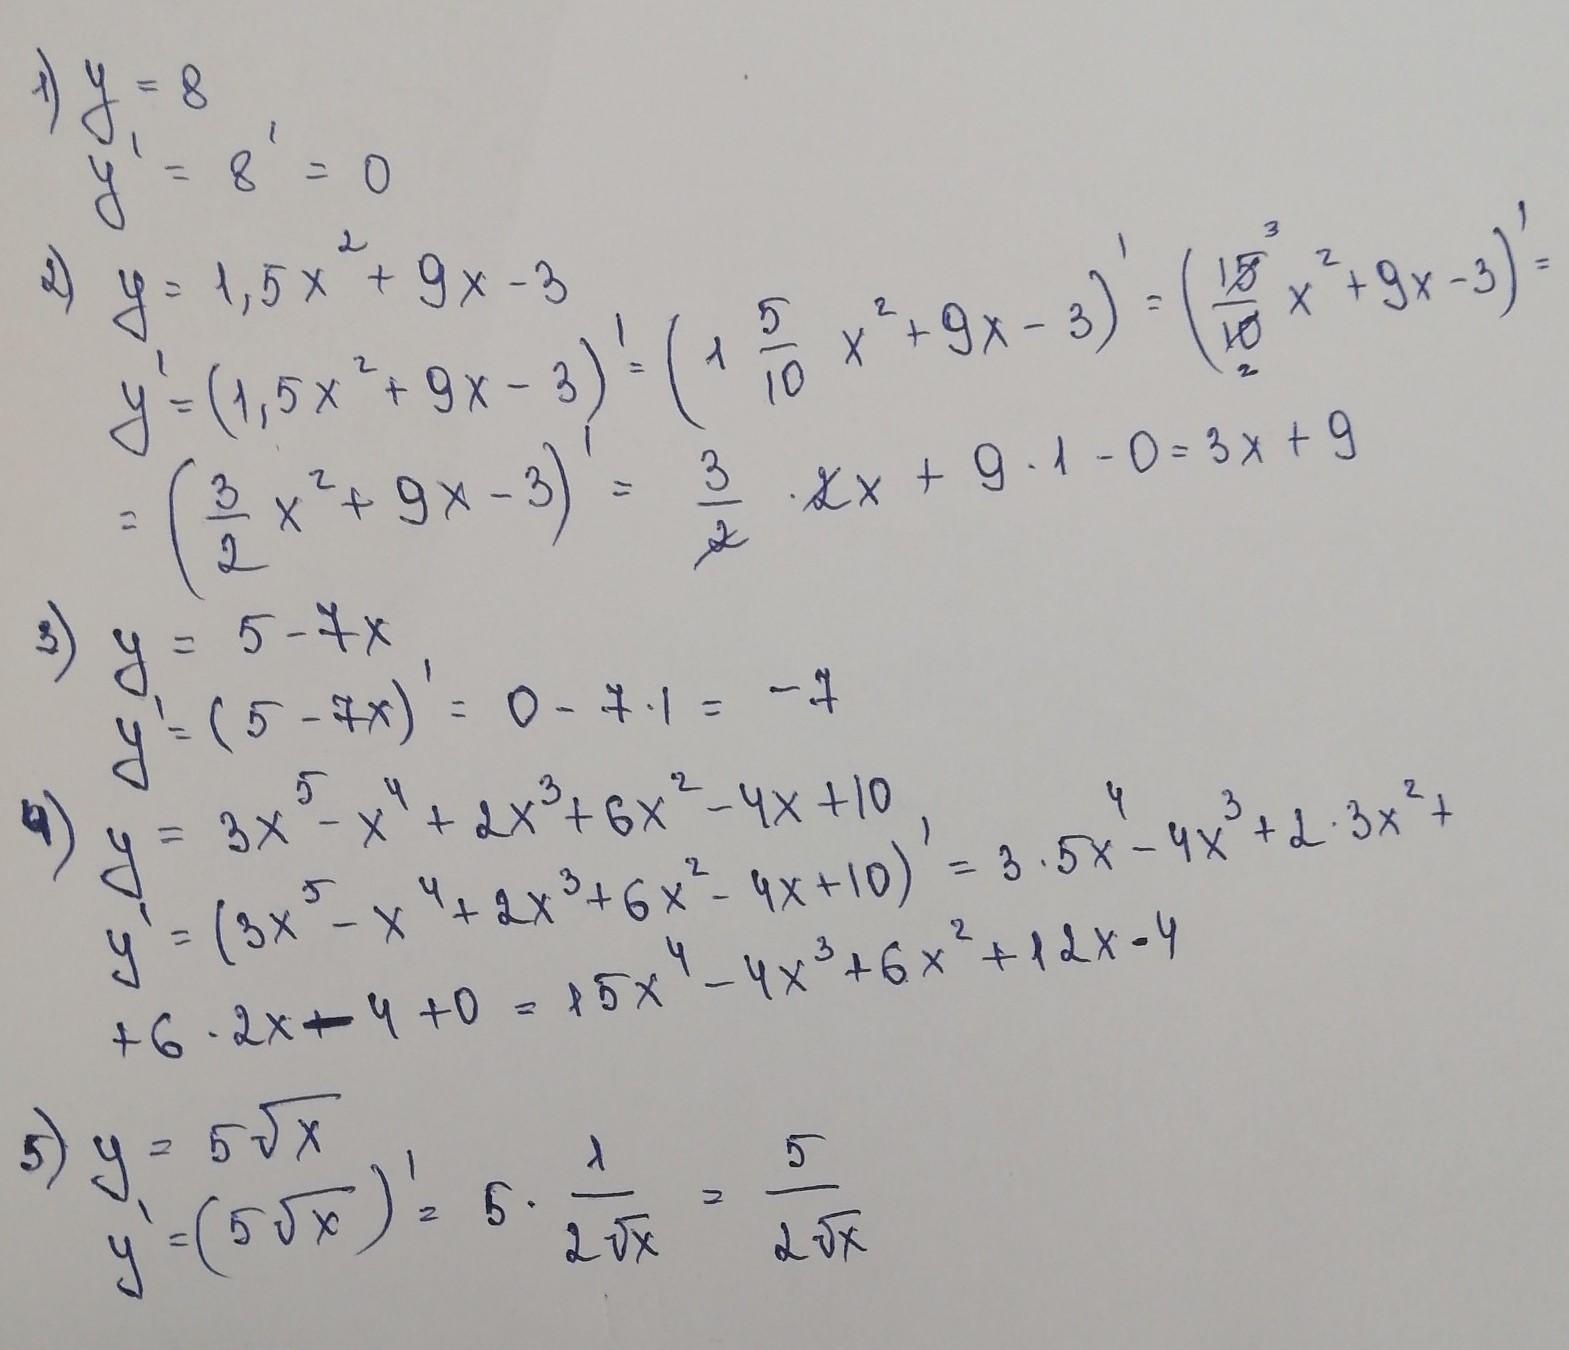 1) y = 8
y' = 8' = 0
2) y = 1,5x² + 9x - 3
y' = (1,5x² + 9x - 3)' = (1 5/10 x² + 9x - 3)' = (15³/10₂ x² + 9x - 3)' =
= (3/2 x² + 9x - 3)' = 3/2 · 2x + 9 · 1 - 0 = 3x + 9
3) y = 5 - 7x
y' = (5 - 7x)' = 0 - 7 · 1 = -7
4) y = 3x⁵ - x⁴ + 2x³ + 6x² - 4x + 10
y' = (3x⁵ - x⁴ + 2x³ + 6x² - 4x + 10)' = 3 · 5x⁴ - 4x³ + 2 · 3x² +
+ 6 · 2x - 4 + 0 = 15x⁴ - 4x³ + 6x² + 12x - 4
5) y = 5√x
y' = (5√x)' = 5 · 1/2√x = 5/2√x